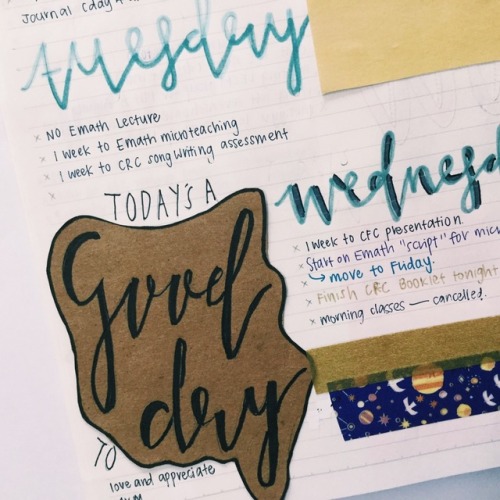 Journal
tuesday
x NO Emath Lecture
x 1 week to Emath microteaching
x 1 week to CRC songwriting assessment
x
TODAY'S A
Good
day
TO
love and appreciate
wednesd
x 1 week to CFC presentation.
x Start on Emath "script" for mic
↳ move to Friday.
x Finish CRC Booklet tonight
x morning classes — cancelled.